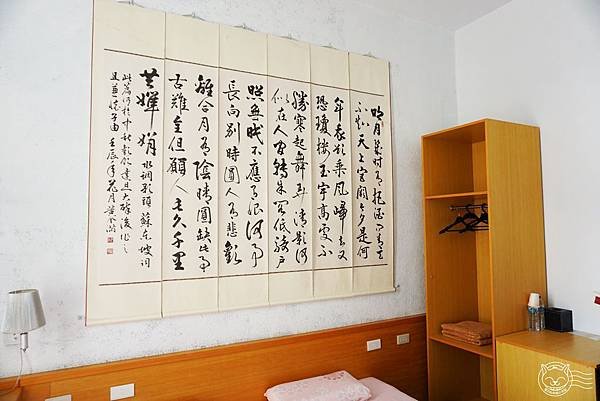 明月幾時有把酒問青天
不知天上宮闕今夕是何
年我欲乘風歸去又
恐瓊樓玉宇高處不
勝寒起舞弄清影何
似在人間轉朱閣低綺戶
照無眠不應有恨何事
長向別時圓人有悲歡
離合月有陰晴圓缺此事
古難全但願人長久千里
共嬋娟 水調歌頭 蘇東坡詞
此篇乃於中秋歡飲達旦大醉後作之
且兼懷子由 壬辰年花月